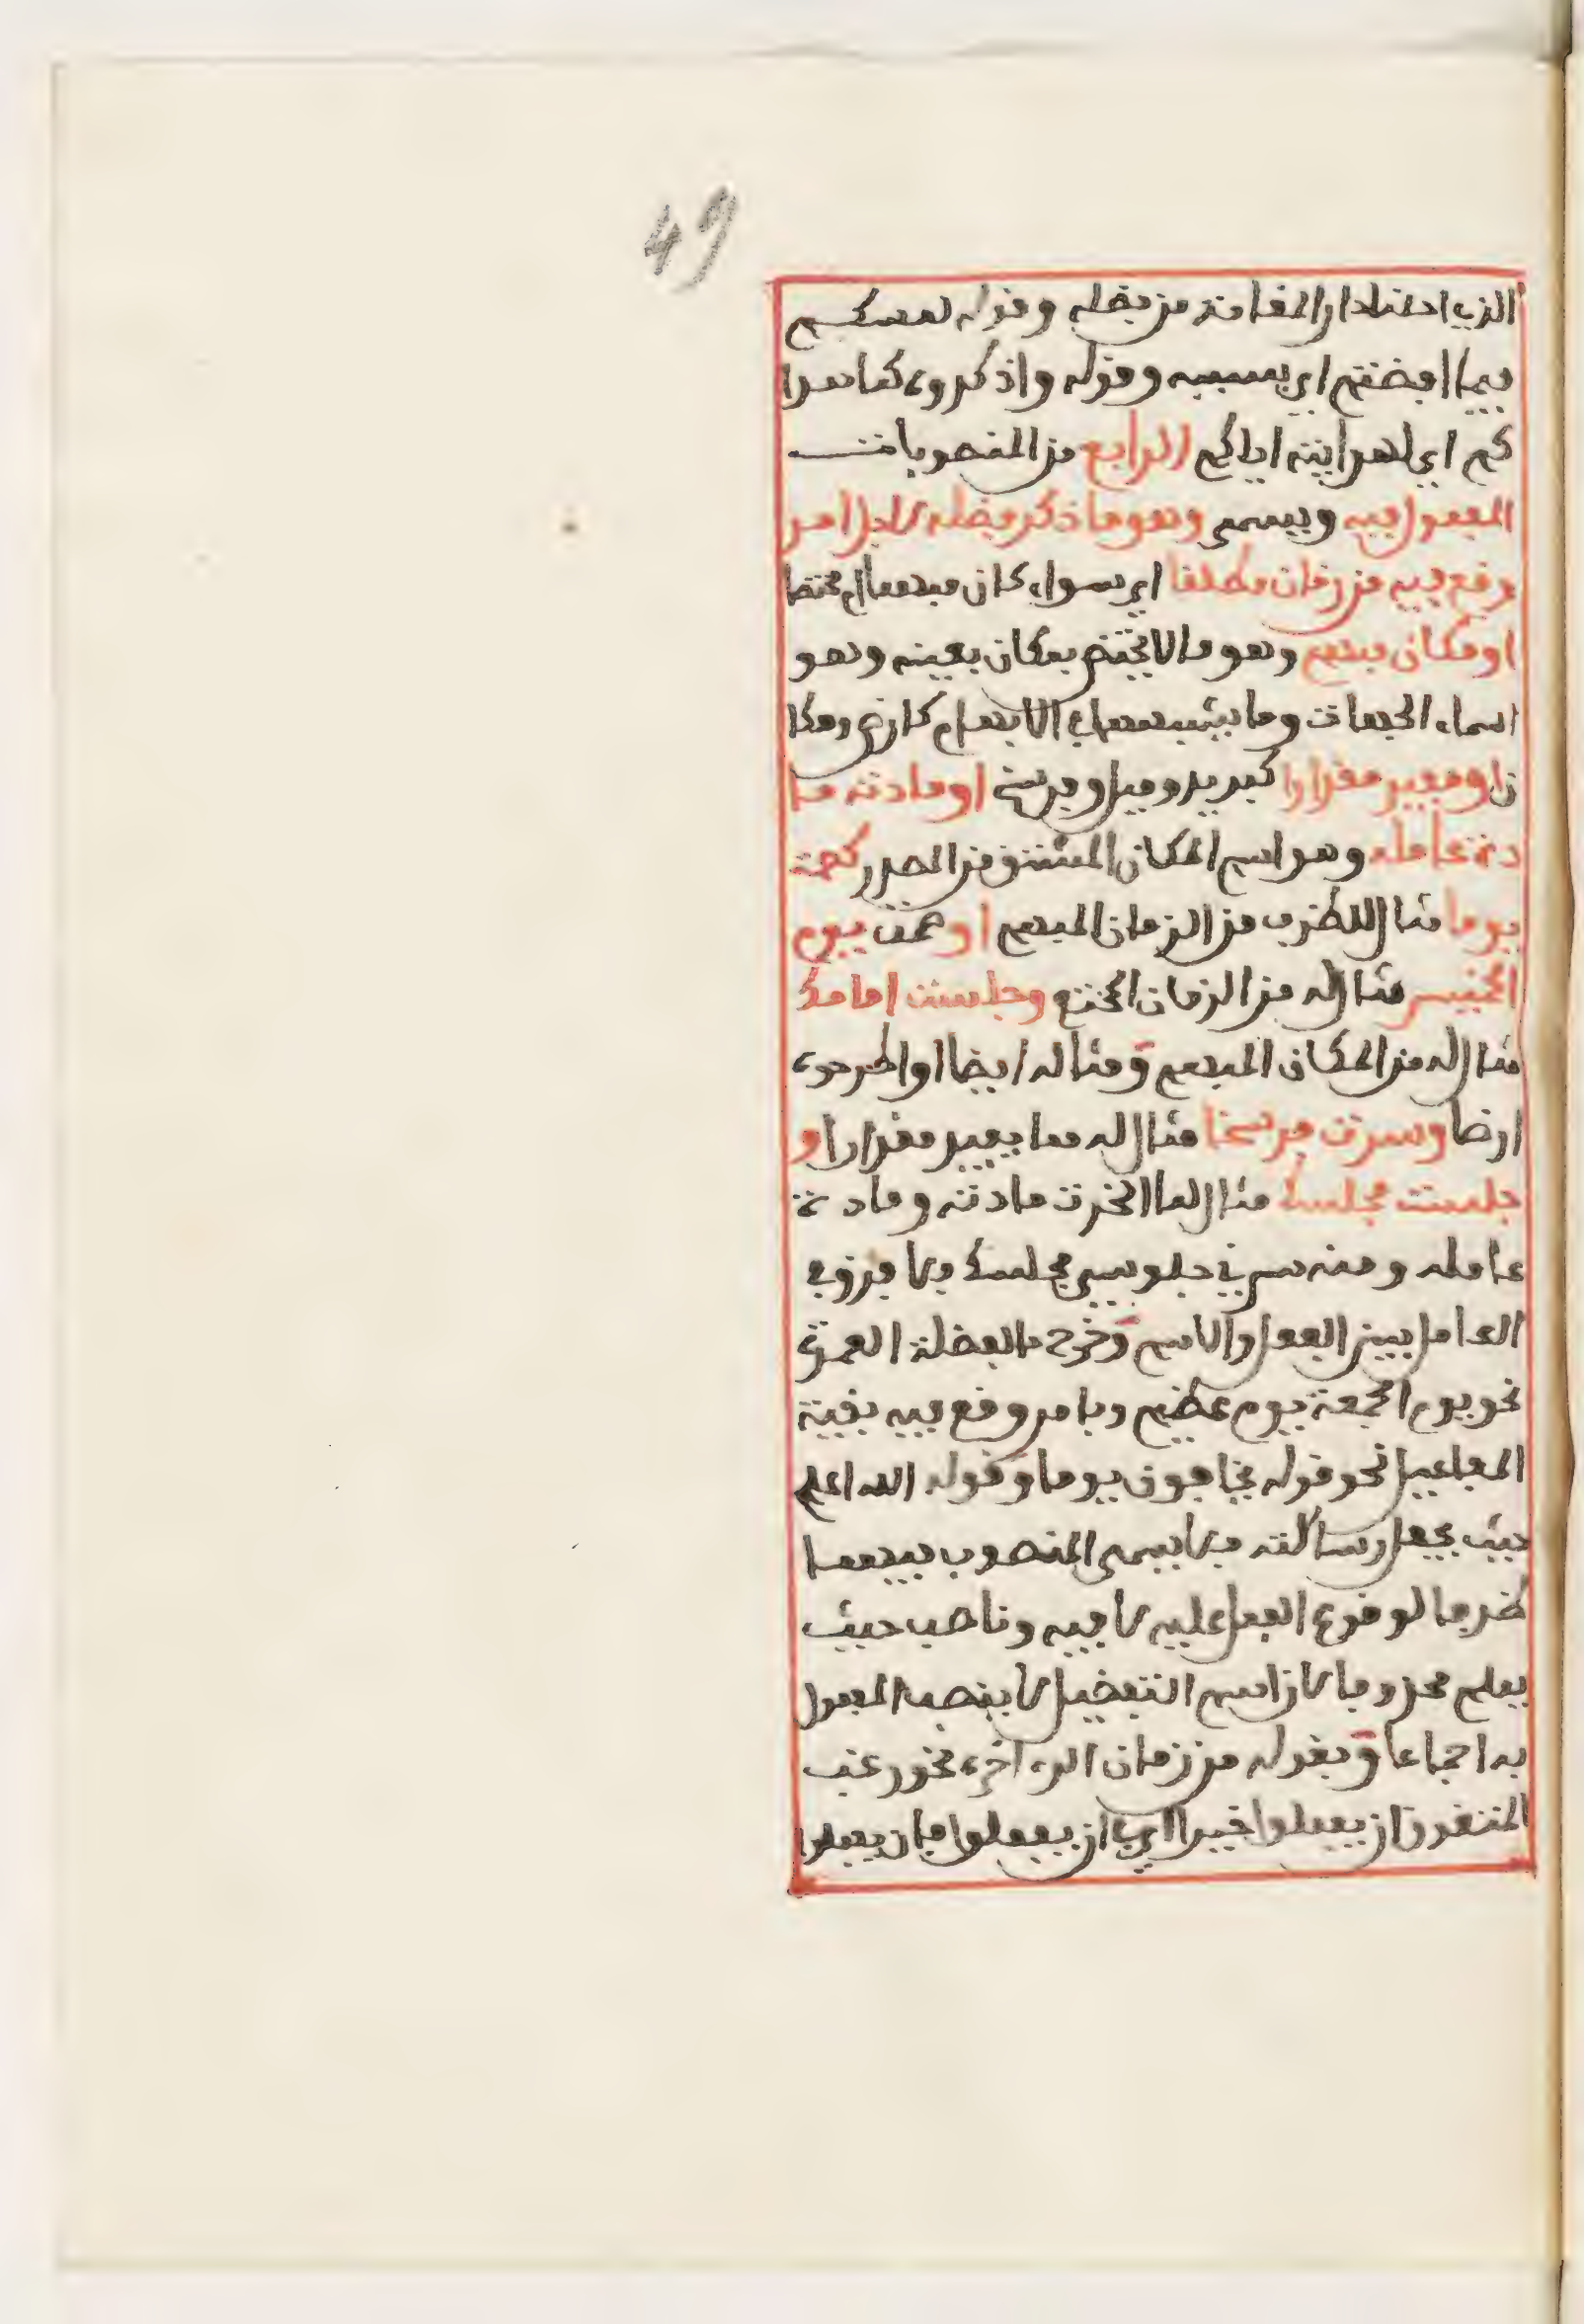 49
الذي احلنا دار المقامة من فضله وقوله لمسكم
فيما افضتم اي بسببه وقوله واذكروه كما هدا
كم اي لهدايته اياكم الرابع من المنصوبات
المفعول فيه ويسمى وهو ما ذكر فضله لاجل امر
وقع فيه من زمان مطلقا اي سواء كان مبهما ام مختصا
او مكان مبهم وهو ما لا يختص بمكان بعينه وهو
اسماء الجهات وما يشبهها في الابهام كارض ومكا
ن او مفيد مقدارا كبريد وميل وفرسخ او مادته ما
دة عامله وهو اسم المكان المشتق من المصدر كصمت
يوما مثال للظرف من الزمان المبهم او صمت يوم
الخميس مثال له من الزمان المختص وجلست امامك
مثال له من المكان المبهم ومثاله ايضا او اطرحوه
ارضا وسرت فرسخا مثال له مما يفيد مقدارا او
جلست مجلسك مثال لما اتحدت مادته ومادة
عامله ومنه سرني جلوسي مجلسك فلا فرق في
العامل بين الفعل والاسم وخرج بالفضلة العمدة
نحو يوم الجمعة يوم عظيم وبامر وقع فيه بقية
المفاعيل نحو قوله يخافون يوما وقوله الله اعلم
حيث يجعل رسالته فلا يسمى المنصوب فيهما
ظرفا لوقوع الفعل عليه لا فيه وناصب حيث
يعلم محذوفا لان اسم التفضيل لا ينصب المفعول
به اجماعا وبقوله من زمان الى اخره نحو رغب
المتقون ان يفعلوا خيرا اي في ان يفعلوا فان يفعلوا